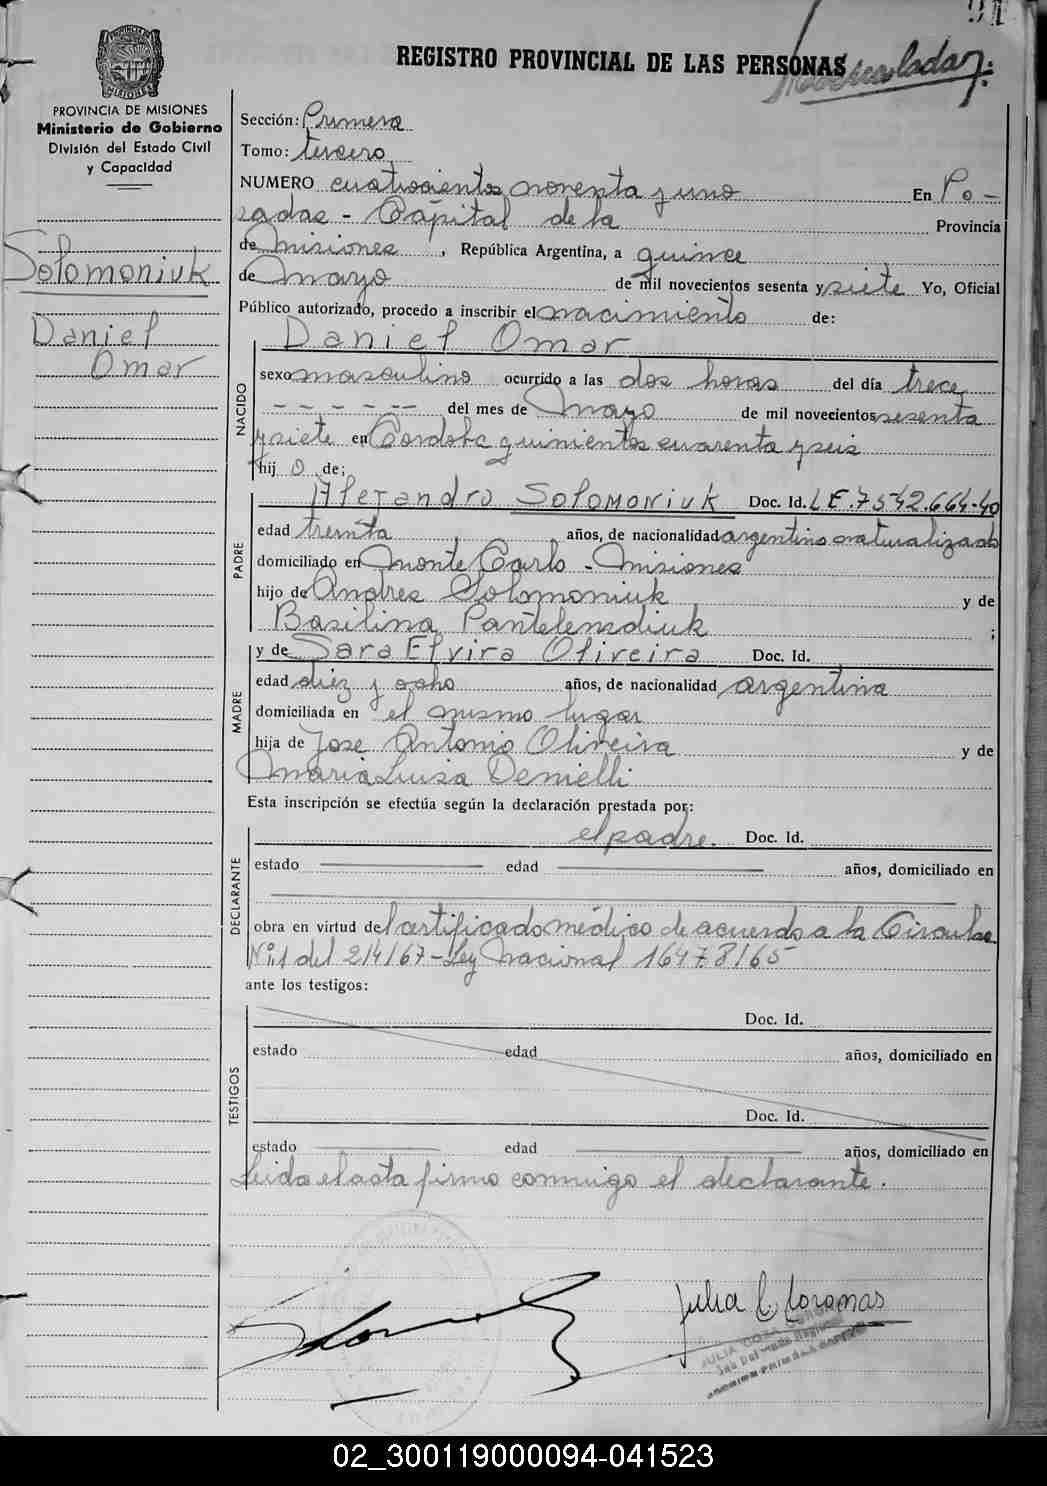 REGISTRO PROVINCIAL DE LAS PERSONAS
PROVINCIA DE MISIONES
Ministerio de Gobierno
División del Estado Civil
y Capacidad
Solomoniuk
Daniel
Omar
Sección: Primera
Tomo: tercero
NUMERO cuatrocientos noventa y uno En Po-
sadas - Capital de la Provincia
de Misiones, República Argentina, a quince
de Mayo de mil novecientos sesenta y siete Yo, Oficial
Público autorizado, procedo a inscribir el nacimiento de:
Daniel Omar
NACIDO
sexo masculino ocurrido a las dos horas del día trece
- - - - - -- del mes de Mayo de mil novecientos sesenta
y siete en Cordoba quinientos cuarenta y seis
hij o de;
PADRE
Alejandro Solomoniuk Doc. Id. L E. 7542.664-40
edad treinta años, de nacionalidad argentino naturalizado
domiciliado en Monte Carlo - Misiones
hijo de Andres Solomoniuk y de
Basilina ;
MADRE
y de Sara Elvira Oliveira Doc. Id.
edad diez y ocho años, de nacionalidad argentina
domiciliada en el mismo lugar
hija de Jose Antonio Oliveira y de
Maria Luisa Demelli
Esta inscripción se efectúa según la declaración prestada por:
DECLARANTE
el padre. Doc. Id.
estado edad años, domiciliado en
obra en virtud del certificado médico de acuerdo a la Circular
Nº:1 del 2/4/67 - Ley Nacional 16478/65
ante los testigos:
TESTIGOS
Doc. Id.
estado edad años, domiciliado en
Doc. Id.
estado edad años, domiciliado en
Leida el acta firmo conmigo el declarante.
02_300119000094-041523